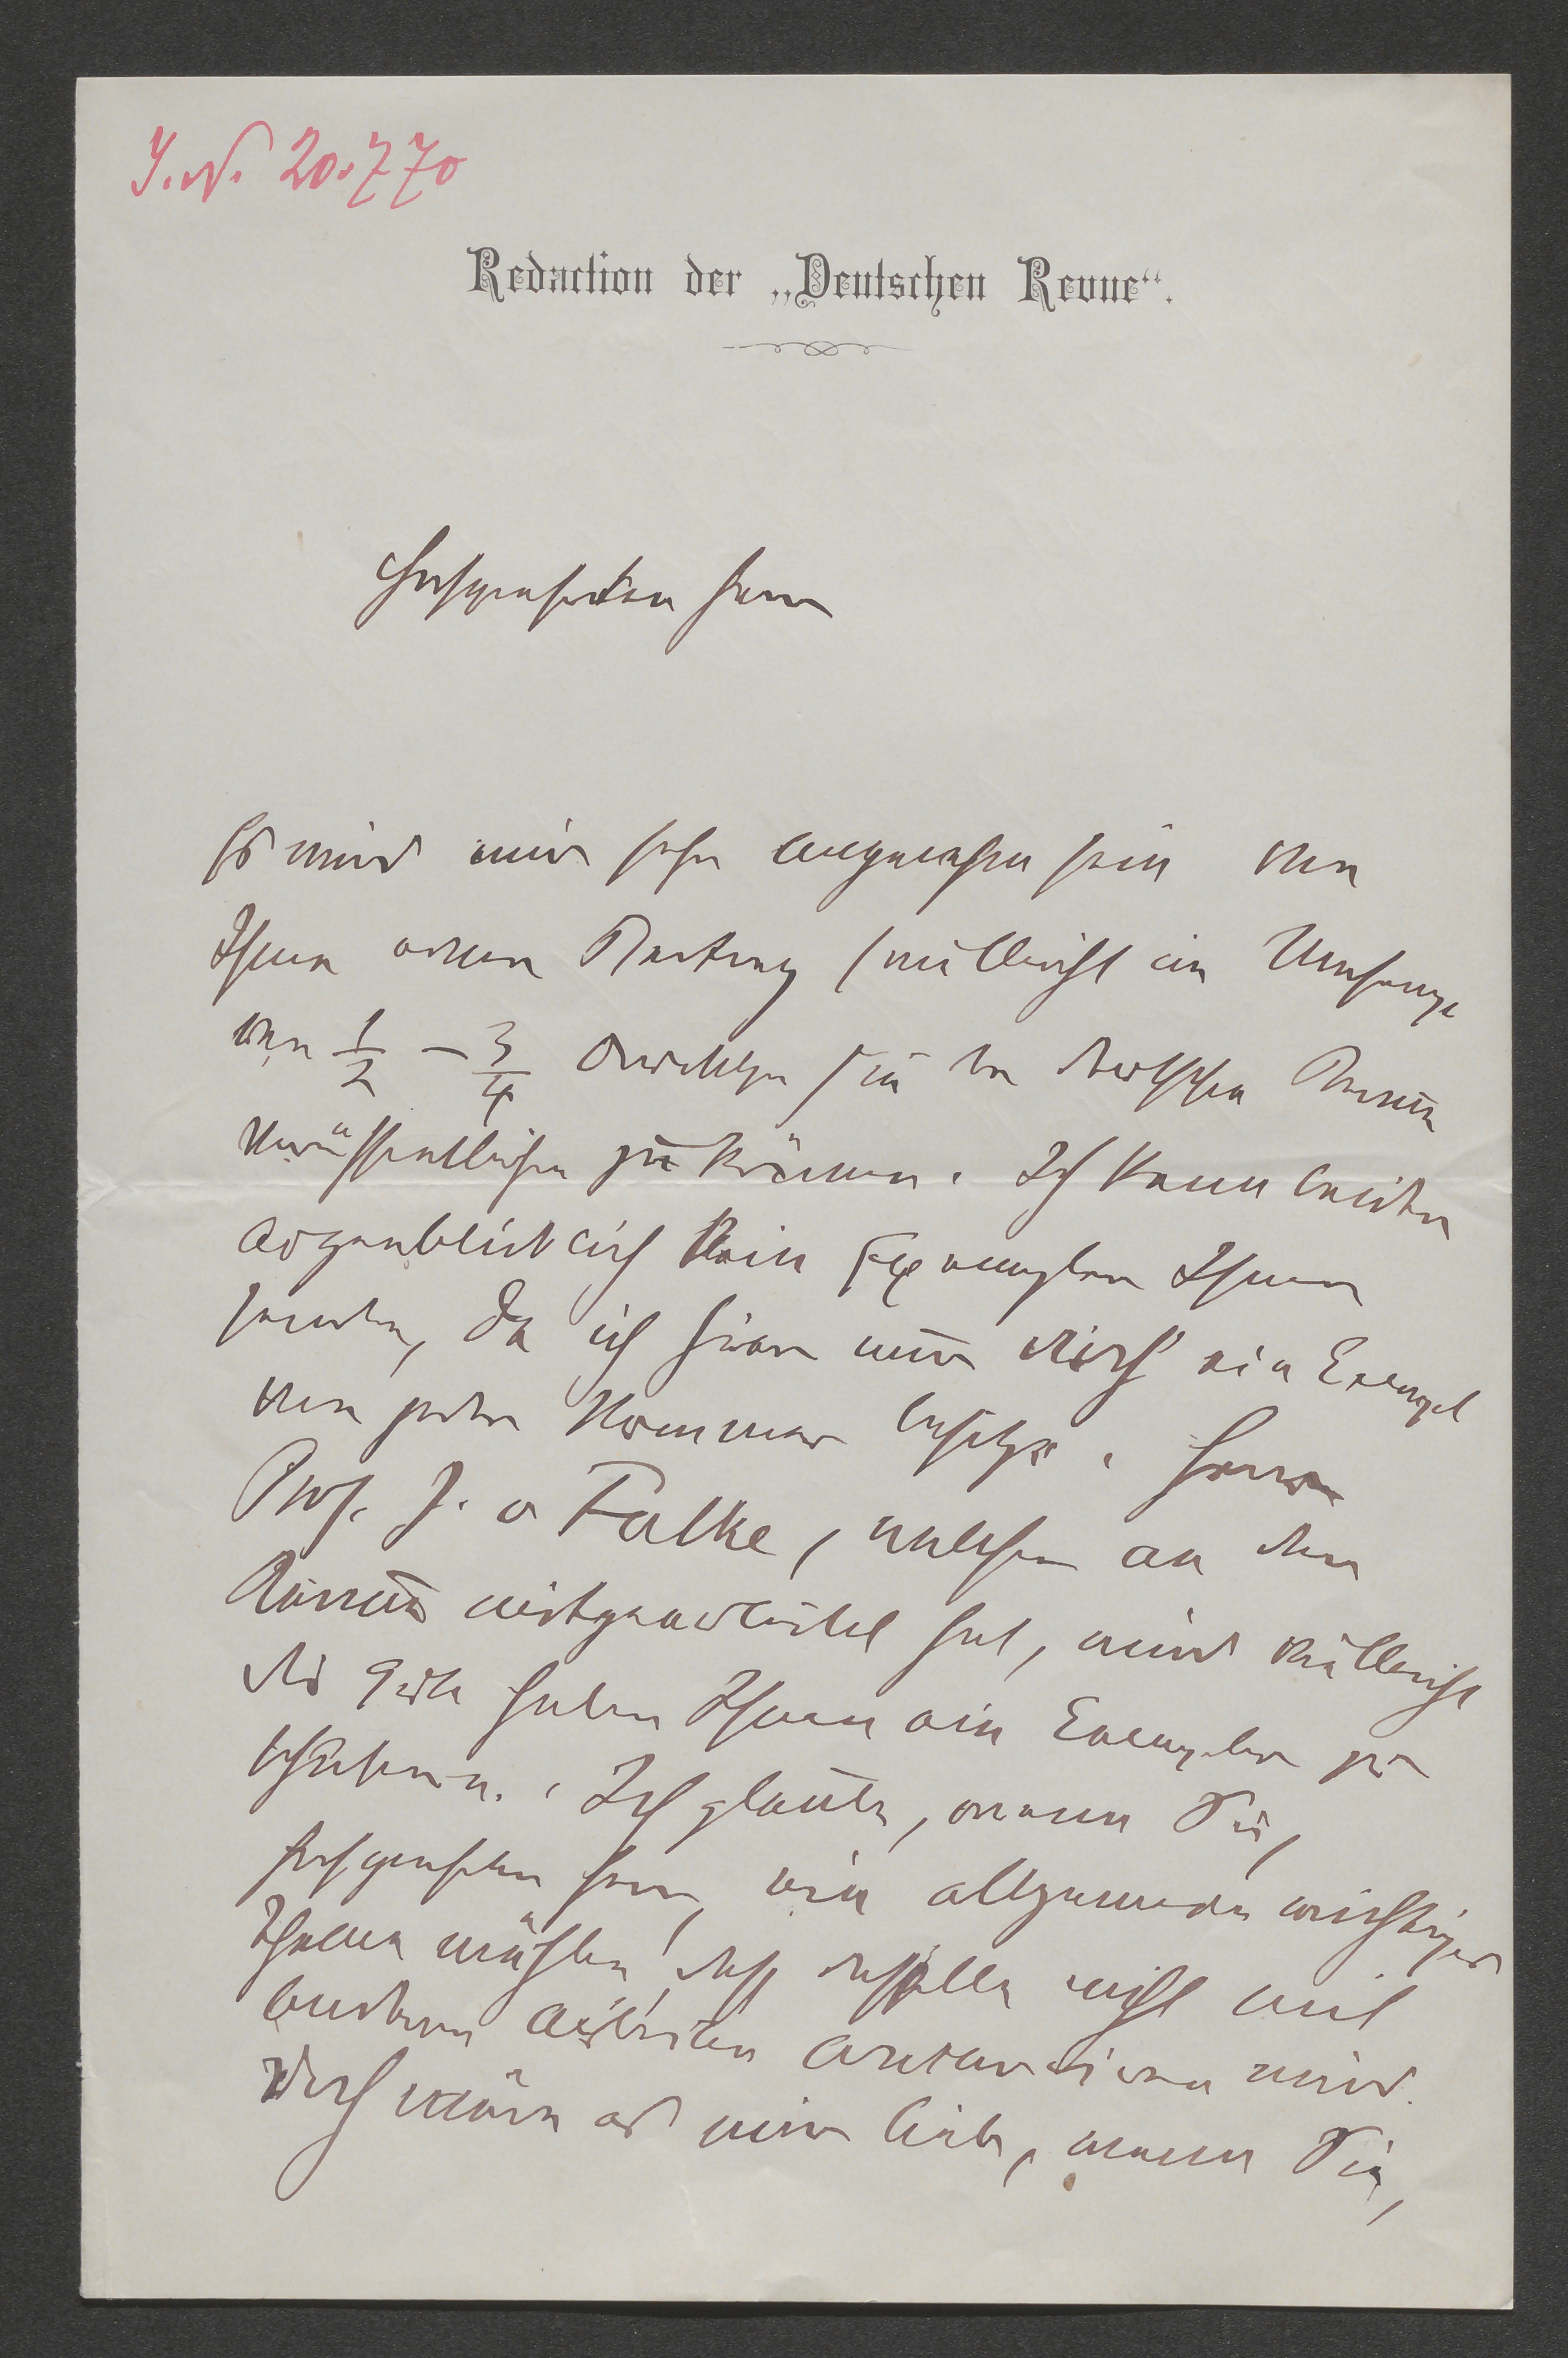 J.N. 20.770
Redaction der „Deutschen Revue“.
Hochgeehrter Herr
Es wird mir sehr angenehm sein von
Ihnen einen Beitrag (vielleicht im Umfange
von 1/2 – 3/4 Druckbogen) in der Deutschen Revue
veröffentlichen zu können. Ich kann leider
augenblicklich kein Exemplar Ihnen
senden, da ich hier nur noch ein Exempl
von jeder Nummer besitze. Herr
Prof. J. v Falke, welcher an der
Revue mitgearbeitet hat, wird vielleicht
die Güte haben Ihnen ein Exemplar zu
Ich glaube, wenn Sie,
hochgeehrter Herr, ein allgemein wichtiges
Thema wählen, dass dasselbe nicht mit
anderen Arbeiten wird.
Doch wäre es mir lieb, wenn Sie,